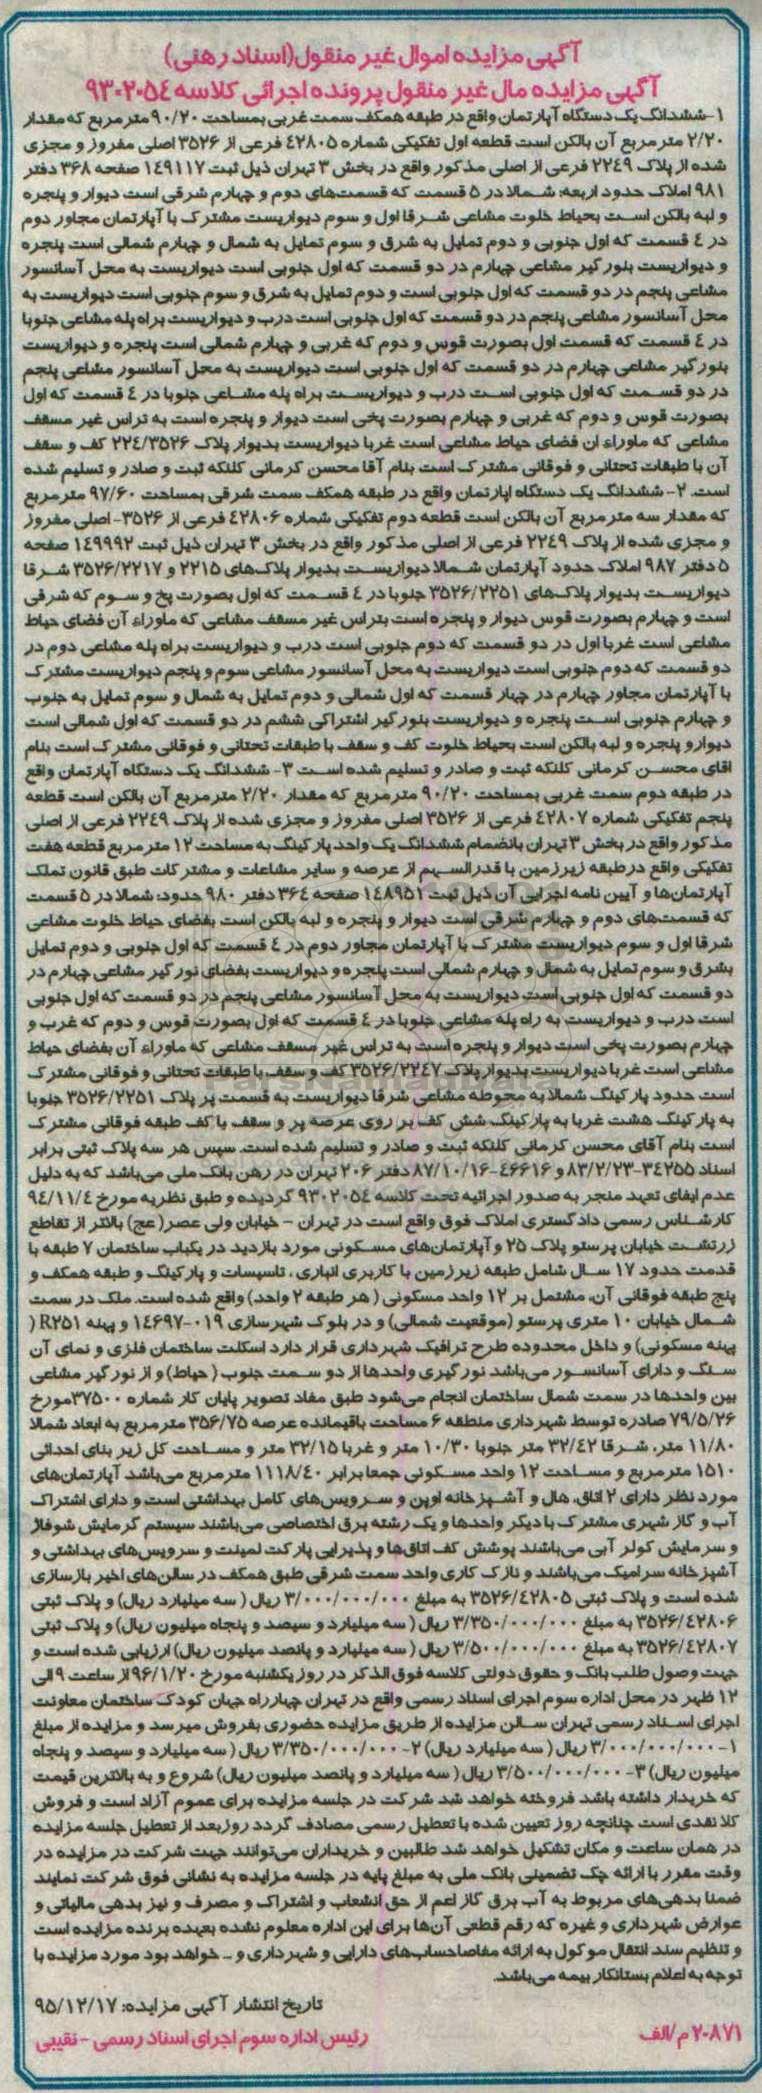 آگهی مزایده اموال غیر منقول(اسناد رهنی)
آگهی مزایده مال غیر منقول پرونده اجرائی کلاسه ۹۳۰۲۰۵۴
۱-ششدانگ یک دستگاه آپارتمان واقع در طبقه همکف سمت غربی بمساحت ۹۰/۲۰ متر مربع که مقدار
۲/۲۰ متر مربع آن بالکن است قطعه اول تفکیکی شماره ۴۲۸۰۵ فرعی از ۳۵۲۶ اصلی مفروز و مجزی
شده از پلاک ۲۲۴۹ فرعی از اصلی مذکور واقع در بخش ۳ تهران ذیل ثبت ۱۴۹۱۱۷ صفحه ۳۶۸ دفتر
۹۸۱ املاک حدود اربعه: شمالا در ۵ قسمت که قسمت‌های دوم و چهارم شرقی است دیوار و پنجره
و لبه بالکن است بحیاط خلوت مشاعی شرقا اول و سوم دیواریست مشترک با آپارتمان مجاور دوم
در ۴ قسمت که اول جنوبی و دوم تمایل به شرق و سوم تمایل به شمال و چهارم شمالی است پنجره
و دیواریست بنورگیر مشاعی چهارم در دو قسمت که اول جنوبی است دیواریست به محل آسانسور
مشاعی پنجم در دو قسمت که اول جنوبی است و دوم تمایل به شرق و سوم جنوبی است دیواریست به
محل آسانسور مشاعی پنجم در دو قسمت که اول جنوبی است درب و دیواریست براه پله مشاعی جنوبا
در ۴ قسمت که قسمت اول بصورت قوس و دوم که غربی و چهارم شمالی است پنجره و دیواریست
بنورگیر مشاعی چهارم در دو قسمت که اول جنوبی است دیواریست به محل آسانسور مشاعی پنجم
در دو قسمت که اول جنوبی است درب و دیواریست براه پله مشاعی جنوبا در ۴ قسمت که اول
بصورت قوس و دوم که غربی و چهارم بصورت پخی است دیوار و پنجره است به تراس غیر مسقف
مشاعی که ماوراء ان فضای حیاط مشاعی است غربا دیواریست بدیوار پلاک ۲۲۴/۳۵۲۶ کف و سقف
آن با طبقات تحتانی و فوقانی مشترک است بنام آقا محسن کرمانی کلنکه ثبت و صادر و تسلیم شده
است. ۲- ششدانگ یک دستگاه اپارتمان واقع در طبقه همکف سمت شرقی بمساحت ۹۷/۶۰ مترمربع
که مقدار سه مترمربع آن بالکن است قطعه دوم تفکیکی شماره ۴۲۸۰۶ فرعی از ۳۵۲۶- اصلی مفروز
و مجزی شده از پلاک ۲۲۴۹ فرعی از اصلی مذکور واقع در بخش ۳ تهران ذیل ثبت ۱۴۹۹۹۲ صفحه
۵ دفتر ۹۸۷ املاک حدود آپارتمان شمالا دیواریست بدیوار پلاک‌های ۲۲۱۵ و ۳۵۲۶/۲۲۱۷ شرقا
دیواریست بدیوار پلاک‌های ۳۵۲۶/۲۲۵۱ جنوبا در ۴ قسمت که اول بصورت پخ و سوم که شرقی
است و چهارم بصورت قوس دیوار و پنجره است بتراس غیر مسقف مشاعی که ماوراء آن فضای حیاط
مشاعی است غربا اول در دو قسمت که دوم جنوبی است درب و دیواریست براه پله مشاعی دوم در
دو قسمت که دوم جنوبی است دیواریست به محل آسانسور مشاعی سوم و پنجم دیواریست مشترک
با آپارتمان مجاور چهارم در چهار قسمت که اول شمالی و دوم تمایل به شمال و سوم تمایل به جنوب
و چهارم جنوبی است پنجره و دیواریست بنورگیر اشتراکی ششم در دو قسمت که اول شمالی است
دیوار و پنجره و لبه بالکن است بحیاط خلوت کف و سقف با طبقات تحتانی و فوقانی مشترک است بنام
اقای محسن کرمانی کلنکه ثبت و صادر و تسلیم شده است ۳- ششدانگ یک دستگاه آپارتمان واقع
در طبقه دوم سمت غربی بمساحت ۹۰/۲۰ مترمربع که مقدار ۲/۲۰ مترمربع آن بالکن است قطعه
پنجم تفکیکی شماره ۴۲۸۰۷ فرعی از ۳۵۲۶ اصلی مفروز و مجزی شده از پلاک ۲۲۴۹ فرعی از اصلی
مذکور واقع در بخش ۳ تهران بانضمام ششدانگ یک واحد پارکینگ به مساحت ۱۲ مترمربع قطعه هفت
تفکیکی واقع درطبقه زیرزمین با قدرالسهم از عرصه و سایر مشاعات و مشترکات طبق قانون تملک
آپارتمان‌ها و آیین نامه اجرایی آن ذیل ثبت ۱۴۸۹۵۱ صفحه ۳۶۴ دفتر ۹۸۰ حدود: شمالا در ۵ قسمت
که قسمت‌های دوم و چهارم شرقی است دیوار و پنجره و لبه بالکن است بفضای حیاط خلوت مشاعی
شرقا اول و سوم دیواریست مشترک با آپارتمان مجاور دوم در ۴ قسمت که اول جنوبی و دوم تمایل
بشرق و سوم تمایل به شمال و چهارم شمالی است پنجره و دیواریست بفضای نورگیر مشاعی چهارم در
دو قسمت که اول جنوبی است دیواریست به محل آسانسور مشاعی پنجم در دو قسمت که اول جنوبی
است درب و دیواریست به راه پله مشاعی جنوبا در ۴ قسمت که اول بصورت قوس و دوم که غرب و
چهارم بصورت پخی است دیوار و پنجره است به تراس غیر مسقف مشاعی که ماوراء آن بفضای حیاط
مشاعی است غربا دیواریست بدیوار پلاک ۳۵۲۶/۲۲۴۷ کف و سقف با طبقات تحتانی و فوقانی مشترک
است حدود پارکینگ شمالا به محوطه مشاعی شرقا دیواریست به قسمت پر پلاک ۳۵۲۶/۲۲۵۱ جنوبا
به پارکینگ هشت غربا به پارکینگ شش کف بر روی عرصه پر و سقف با کف طبقه فوقانی مشترک
است بنام آقای محسن کرمانی کلنکه ثبت و صادر و تسلیم شده است. سپس هر سه پلاک ثبتی برابر
اسناد ۳۴۲۵۵-۸۳/۲/۲۳ و ۴۶۶۱۶-۸۷/۱۰/۱۶ دفتر ۲۰۶ تهران در رهن بانک ملی می‌باشد که به دلیل
عدم ایفای تعهد منجر به صدور اجرائیه تحت کلاسه ۹۳۰۲۰۵۴ گردیده و طبق نظریه مورخ ۹۴/۱۱/۴
کارشناس رسمی دادگستری املاک فوق واقع است در تهران - خیابان ولی عصر(عج) بالاتر از تقاطع
زرتشت خیابان پرستو پلاک ۲۵ و آپارتمان‌های مسکونی مورد بازدید در یکباب ساختمان ۷ طبقه با
قدمت حدود ۱۷ سال شامل طبقه زیرزمین با کاربری انباری، تاسیسات و پارکینگ و طبقه همکف و
پنج طبقه فوقانی آن، مشتمل بر ۱۲ واحد مسکونی (هر طبقه ۲ واحد) واقع شده است. ملک در سمت
شمال خیابان ۱۰ متری پرستو (موقعیت شمالی) و در بلوک شهرسازی ۰۱۹-۱۴۶۹۷ و پهنه R۲۵۱ (
پهنه مسکونی) و داخل محدوده طرح ترافیک شهرداری قرار دارد اسکلت ساختمان فلزی و نمای آن
سنگ و دارای آسانسور می‌باشد نورگیری واحدها از دو سمت جنوب (حیاط) و از نورگیر مشاعی
بین واحدها در سمت شمال ساختمان انجام می‌شود طبق مفاد تصویر پایان کار شماره ۳۷۵۰۰مورخ
۷۹/۵/۲۶ صادره توسط شهرداری منطقه ۶ مساحت باقیمانده عرصه ۳۵۶/۷۵ مترمربع به ابعاد شمالا
۱۱/۸۰ متر، شرقا ۳۲/۴۲ متر جنوبا ۱۰/۳۰ متر و غربا ۳۲/۱۵ متر و مساحت کل زیر بنای احداثی
۱۵۱۰ مترمربع و مساحت ۱۲ واحد مسکونی جمعا برابر ۱۱۱۸/۴۰ مترمربع می‌باشد آپارتمان‌های
مورد نظر دارای ۲ اتاق، هال و آشپزخانه اوپن و سرویس‌های کامل بهداشتی است و دارای اشتراک
آب و گاز شهری مشترک با دیگر واحدها و یک رشته برق اختصاصی می‌باشند سیستم گرمایش شوفاژ
و سرمایش کولر آبی می‌باشند پوشش کف اتاق‌ها و پذیرایی پارکت لمینت و سرویس‌های بهداشتی و
آشپزخانه سرامیک می‌باشند و نازک کاری واحد سمت شرقی طبق همکف در سالن‌های اخیر بازسازی
شده است و پلاک ثبتی ۳۵۲۶/۴۲۸۰۵ به مبلغ ۳/۰۰۰/۰۰۰/۰۰۰ ریال (سه میلیارد ریال) و پلاک ثبتی
۳۵۲۶/۴۲۸۰۶ به مبلغ ۳/۳۵۰/۰۰۰/۰۰۰ ریال (سه میلیارد و سیصد و پنجاه میلیون ریال) و پلاک ثبتی
۳۵۲۶/۴۲۸۰۷ به مبلغ ۳/۵۰۰/۰۰۰/۰۰۰ ریال (سه میلیارد و پانصد میلیون ریال) ارزیابی شده است و
جهت وصول طلب بانک و حقوق دولتی کلاسه فوق الذکر در روز یکشنبه مورخ ۹۶/۱/۲۰ از ساعت ۹ الی
۱۲ ظهر در محل اداره سوم اجرای اسناد رسمی واقع در تهران چهارراه جهان کودک ساختمان معاونت
اجرای اسناد رسمی تهران سالن مزایده از طریق مزایده حضوری بفروش میرسد و مزایده از مبلغ
۱- ۳/۰۰۰/۰۰۰/۰۰۰ ریال (سه میلیارد ریال) ۲- ۳/۳۵۰/۰۰۰/۰۰۰ ریال (سه میلیارد و سیصد و پنجاه
میلیون ریال) ۳- ۳/۵۰۰/۰۰۰/۰۰۰ ریال (سه میلیارد و پانصد میلیون ریال) شروع و به بالاترین قیمت
که خریدار داشته باشد فروخته خواهد شد شرکت در جلسه مزایده برای عموم آزاد است و فروش
کلا نقدی است چنانچه روز تعیین شده با تعطیل رسمی مصادف گردد روزبعد از تعطیل جلسه مزایده
در همان ساعت و مکان تشکیل خواهد شد طالبین و خریداران می‌توانند جهت شرکت در مزایده در
وقت مقرر با ارائه چک تضمینی بانک ملی به مبلغ پایه در جلسه مزایده به نشانی فوق شرکت نمایند
ضمنا بدهی‌های مربوط به آب برق گاز اعم از حق انشعاب و اشتراک و مصرف و نیز بدهی مالیاتی و
عوارض شهرداری و غیره که رقم قطعی آن‌ها برای این اداره معلوم نشده بعهده برنده مزایده است
و تنظیم سند انتقال موکول به ارائه مفاصاحساب‌های دارایی و شهرداری و ... خواهد بود مورد مزایده با
توجه به اعلام بستانکار بیمه می‌باشد.
تاریخ انتشار آگهی مزایده: ۹۵/۱۲/۱۷
۲۰۸۷۱ م/الف
رئیس اداره سوم اجرای اسناد رسمی - نقیبی